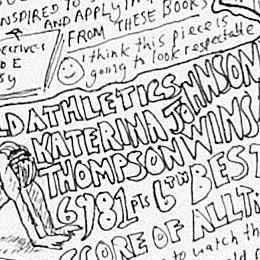 INSPIRED TO
AND APPLY
FROM THESE BOOKS
I think this piece is
going to look respectable
ATHLETICS
KATERINA JOHNSON
THOMPSON WINS
6981 pts 6TH BEST
SCORE OF ALL
to watch th